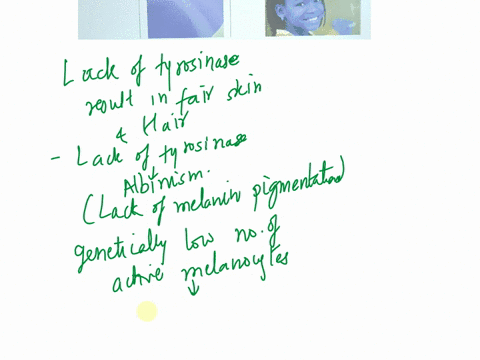 Lack of tyrosinase
result in fair skin
& Hair
- Lack of tyrosinase
↓
Albinism.
(Lack of melanin pigmentation)
genetically low no. of
active melanocytes
↓